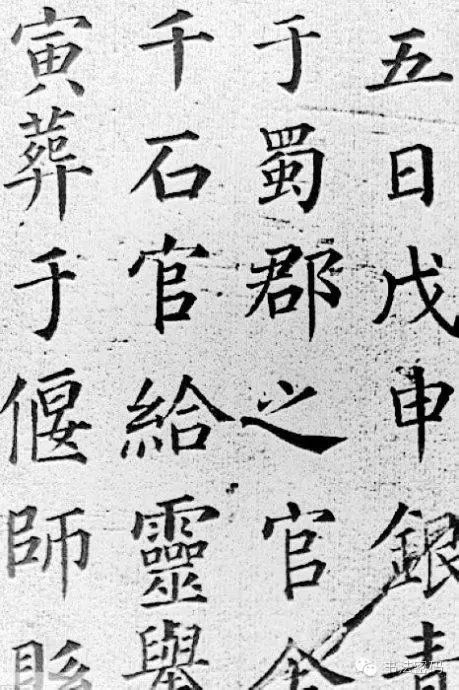 五日戊申銀青
于蜀郡之官舍
千石官給靈
寅葬于偃師縣
书法密码